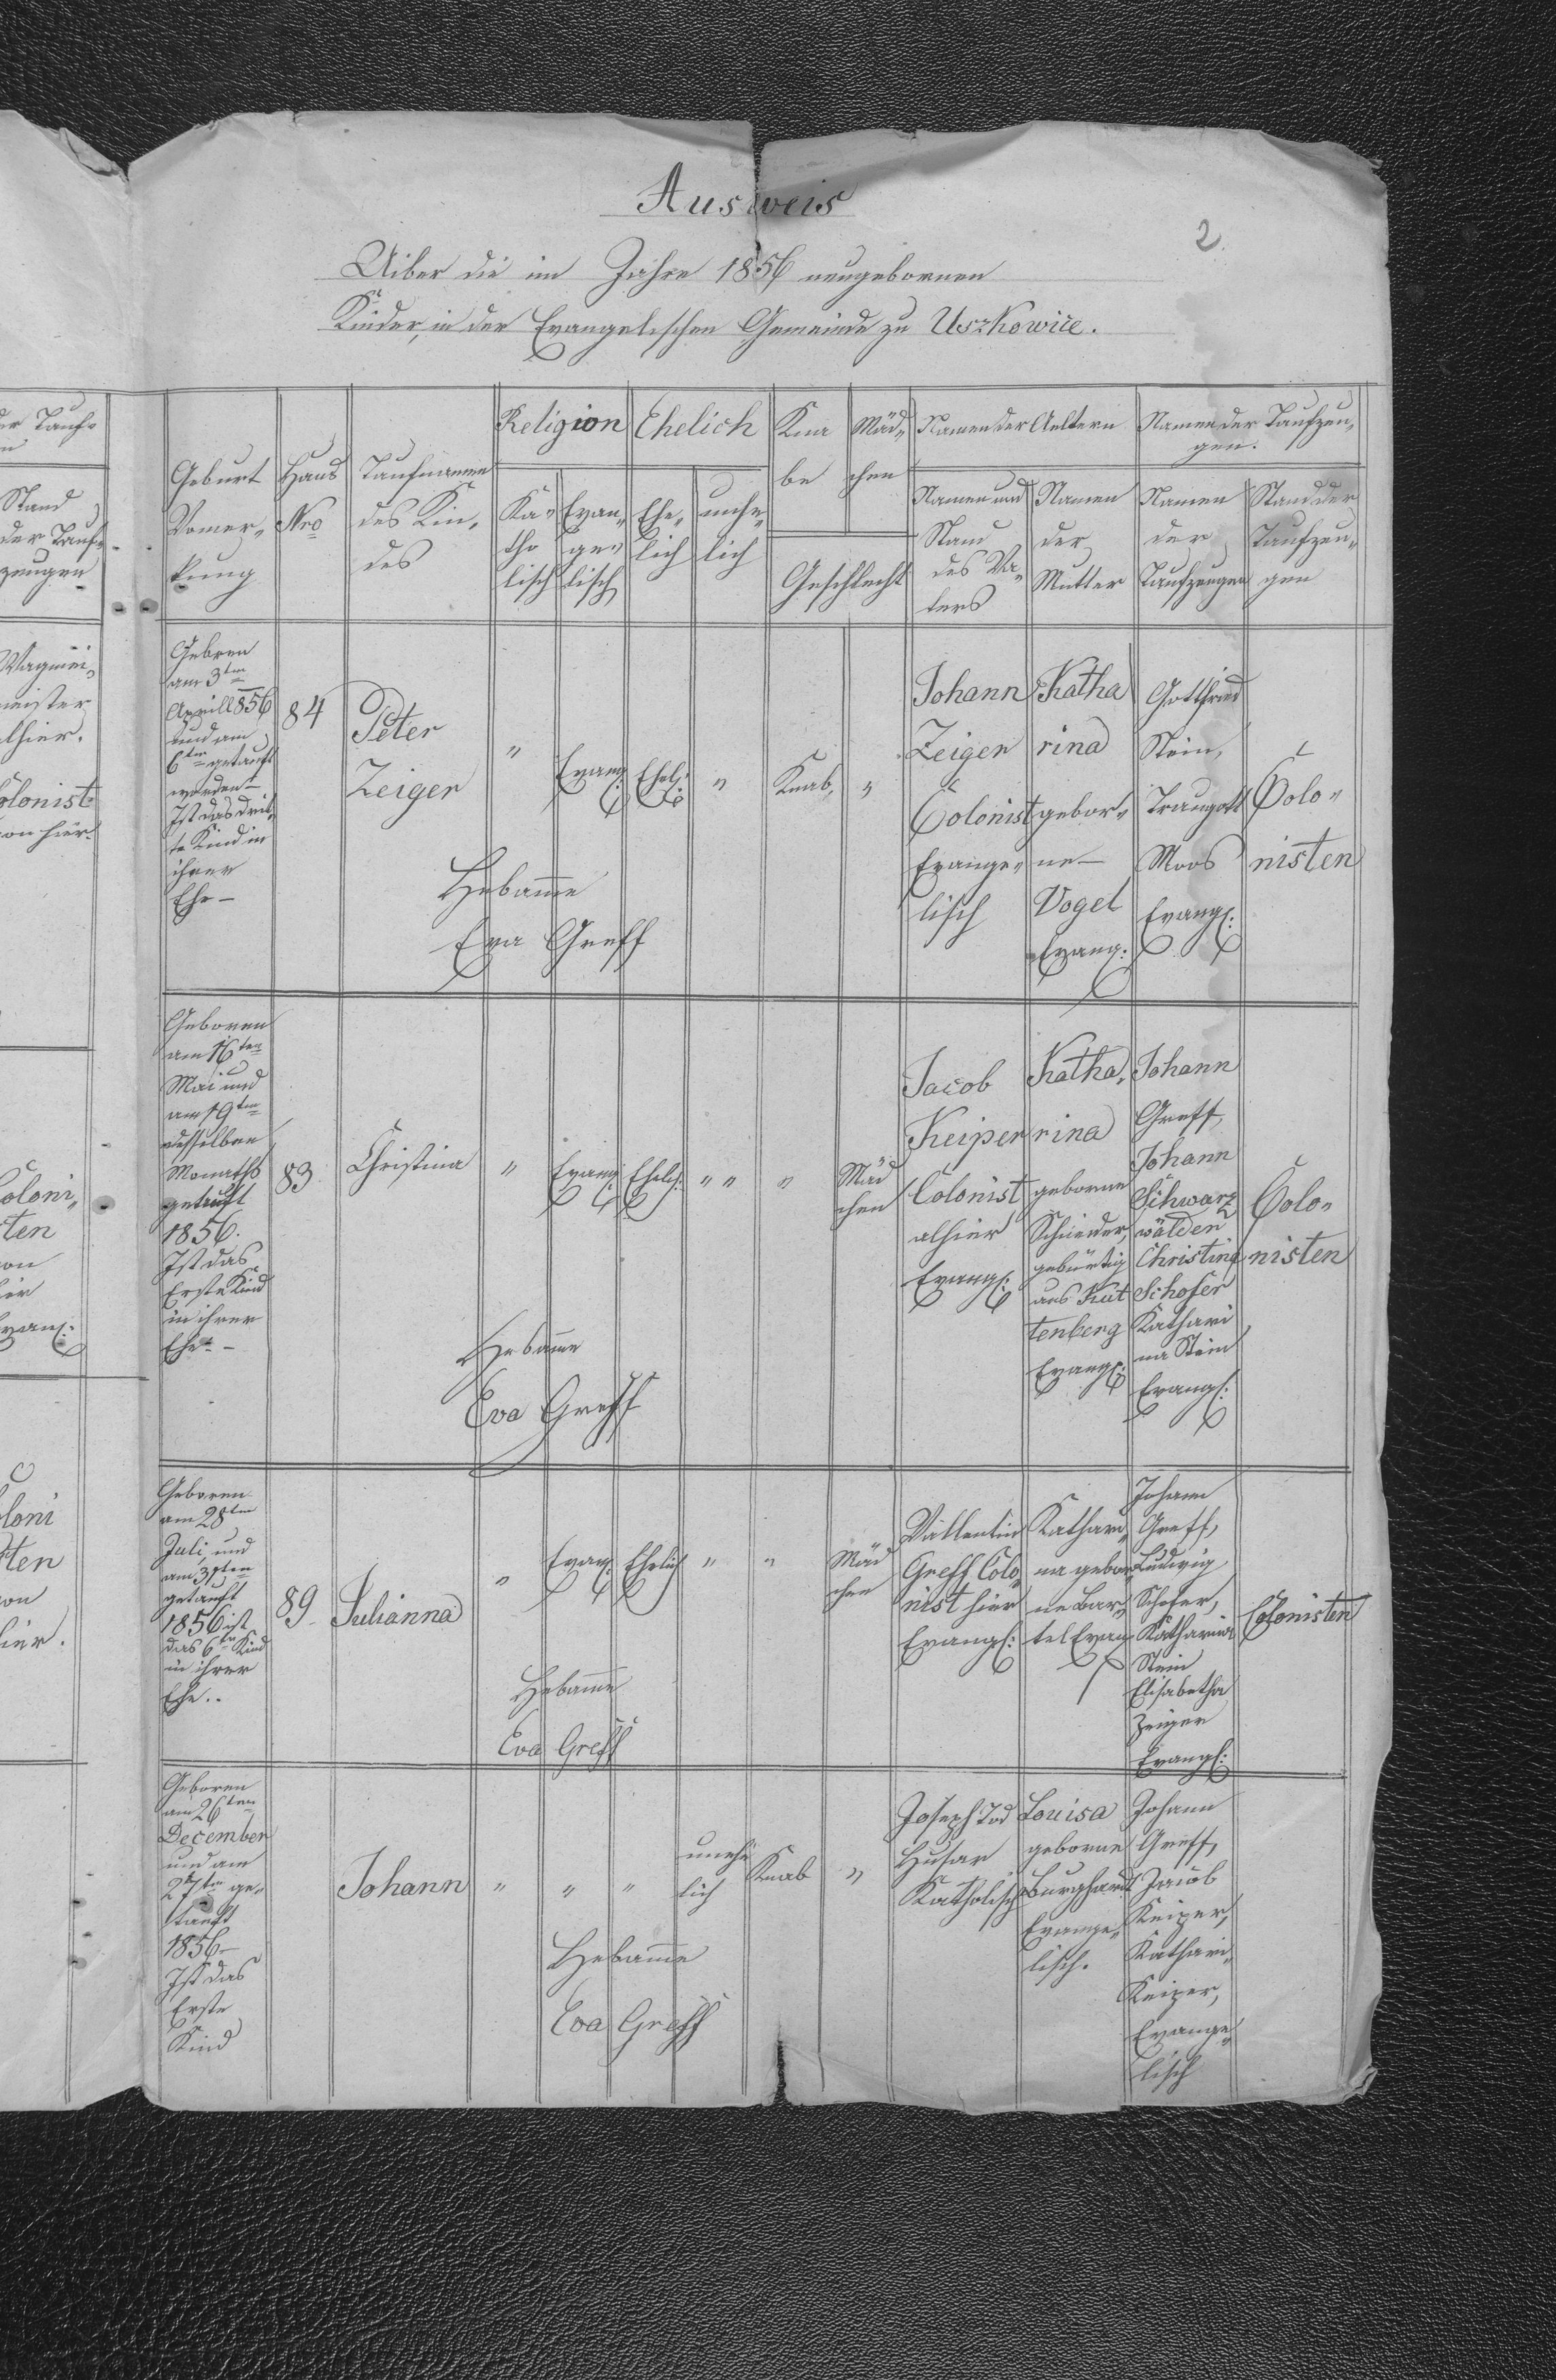 Ausweis
2.
Uiber die im Jahre 1856 neugebornen
Kinder, in der Evangelischen Gemeinde zu Uszkowice.
Geburt
Vomer-
kung
Haus
Nro
Taufname
des Kin-
des
Religion
Ka-
tho
lisch
Evan-
ge-
lisch
Ehelich
Ehe-
lich
unehe-
lich
Kna
be
Mäd-
chen
Geschlecht
Namen der Aeltern
Namen und
Stand
des Va-
ters
Namen
der
Mutter
Namen der Taufzeu-
gen.
Namen
der
Taufzeugen
Stand der
Taufzeu-
gen
Gebren
am 3ten
Aprill 856
und am
6ten getauft
worden -
Ist das drit-
te Kind in
ihrer
Ehe -
84
Peter
Zeiger
"
Evang:
Ehel:
"
Knab.
"
Johann
Zeiger
Colonist
Evange-
lisch
Katha
rina
gebor-
ne -
Vogel
Evang:
Gottfried
Stein,
Traugott
Moos
Evangl:
Colo-
nisten
Hebamme
Eva Greff
Geboren
am 16ten
Mai und
am 19ten
desselben
Monaths
getauft
1856.
Ist das
Erste Kind
in ihrer
Ehe -
83
Christina
"
Evang:
Ehel:
" "
"
Mäd
chen
Jacob
Keiper
Colonist
alhier
Evangl:
Katha-
rina
geborne
gebürtig
aus Kut
tenberg
Evangl:
Johann
Greff,
Johann
Schwarz
wälden
Christina
Schofer
Kathari
na Stein
Evangl:
Colo-
nisten
Hebamme
Eva Greff
Geboren
am 28ten
Juli, und
am 31ten
getauft
1856 ist
das 6te Kind
in ihrer
Ehe..
89
Julianna
"
Evang:
Ehelich
"
"
Mäd
chen
Vallentin
Greff Colo
nist hier
Evangl:
Kathari-
na gebor-
ne Bar-
tel Evang
Johann
Greff,
Ludwig
Schofer,
Katharina
Stein
Elisabetha
Zeiger
Evangl:
Colonisten
Hebamme
Eva Greff
Geboren
am 26ten
December
und am
27ten ge-
tauft
1856 -
Ist das
Erste
Kind
Johann
"
"
"
unehe
lich
Knab
"
Joseph Tod
Husar
Katholisch
Louisa
geborne
Burghardt
Evange-
lisch.
Johann
Greff,
Jacob
Keiper,
Kathari-
Keiper,
Evange-
lisch
Hebamme
Eva Greff